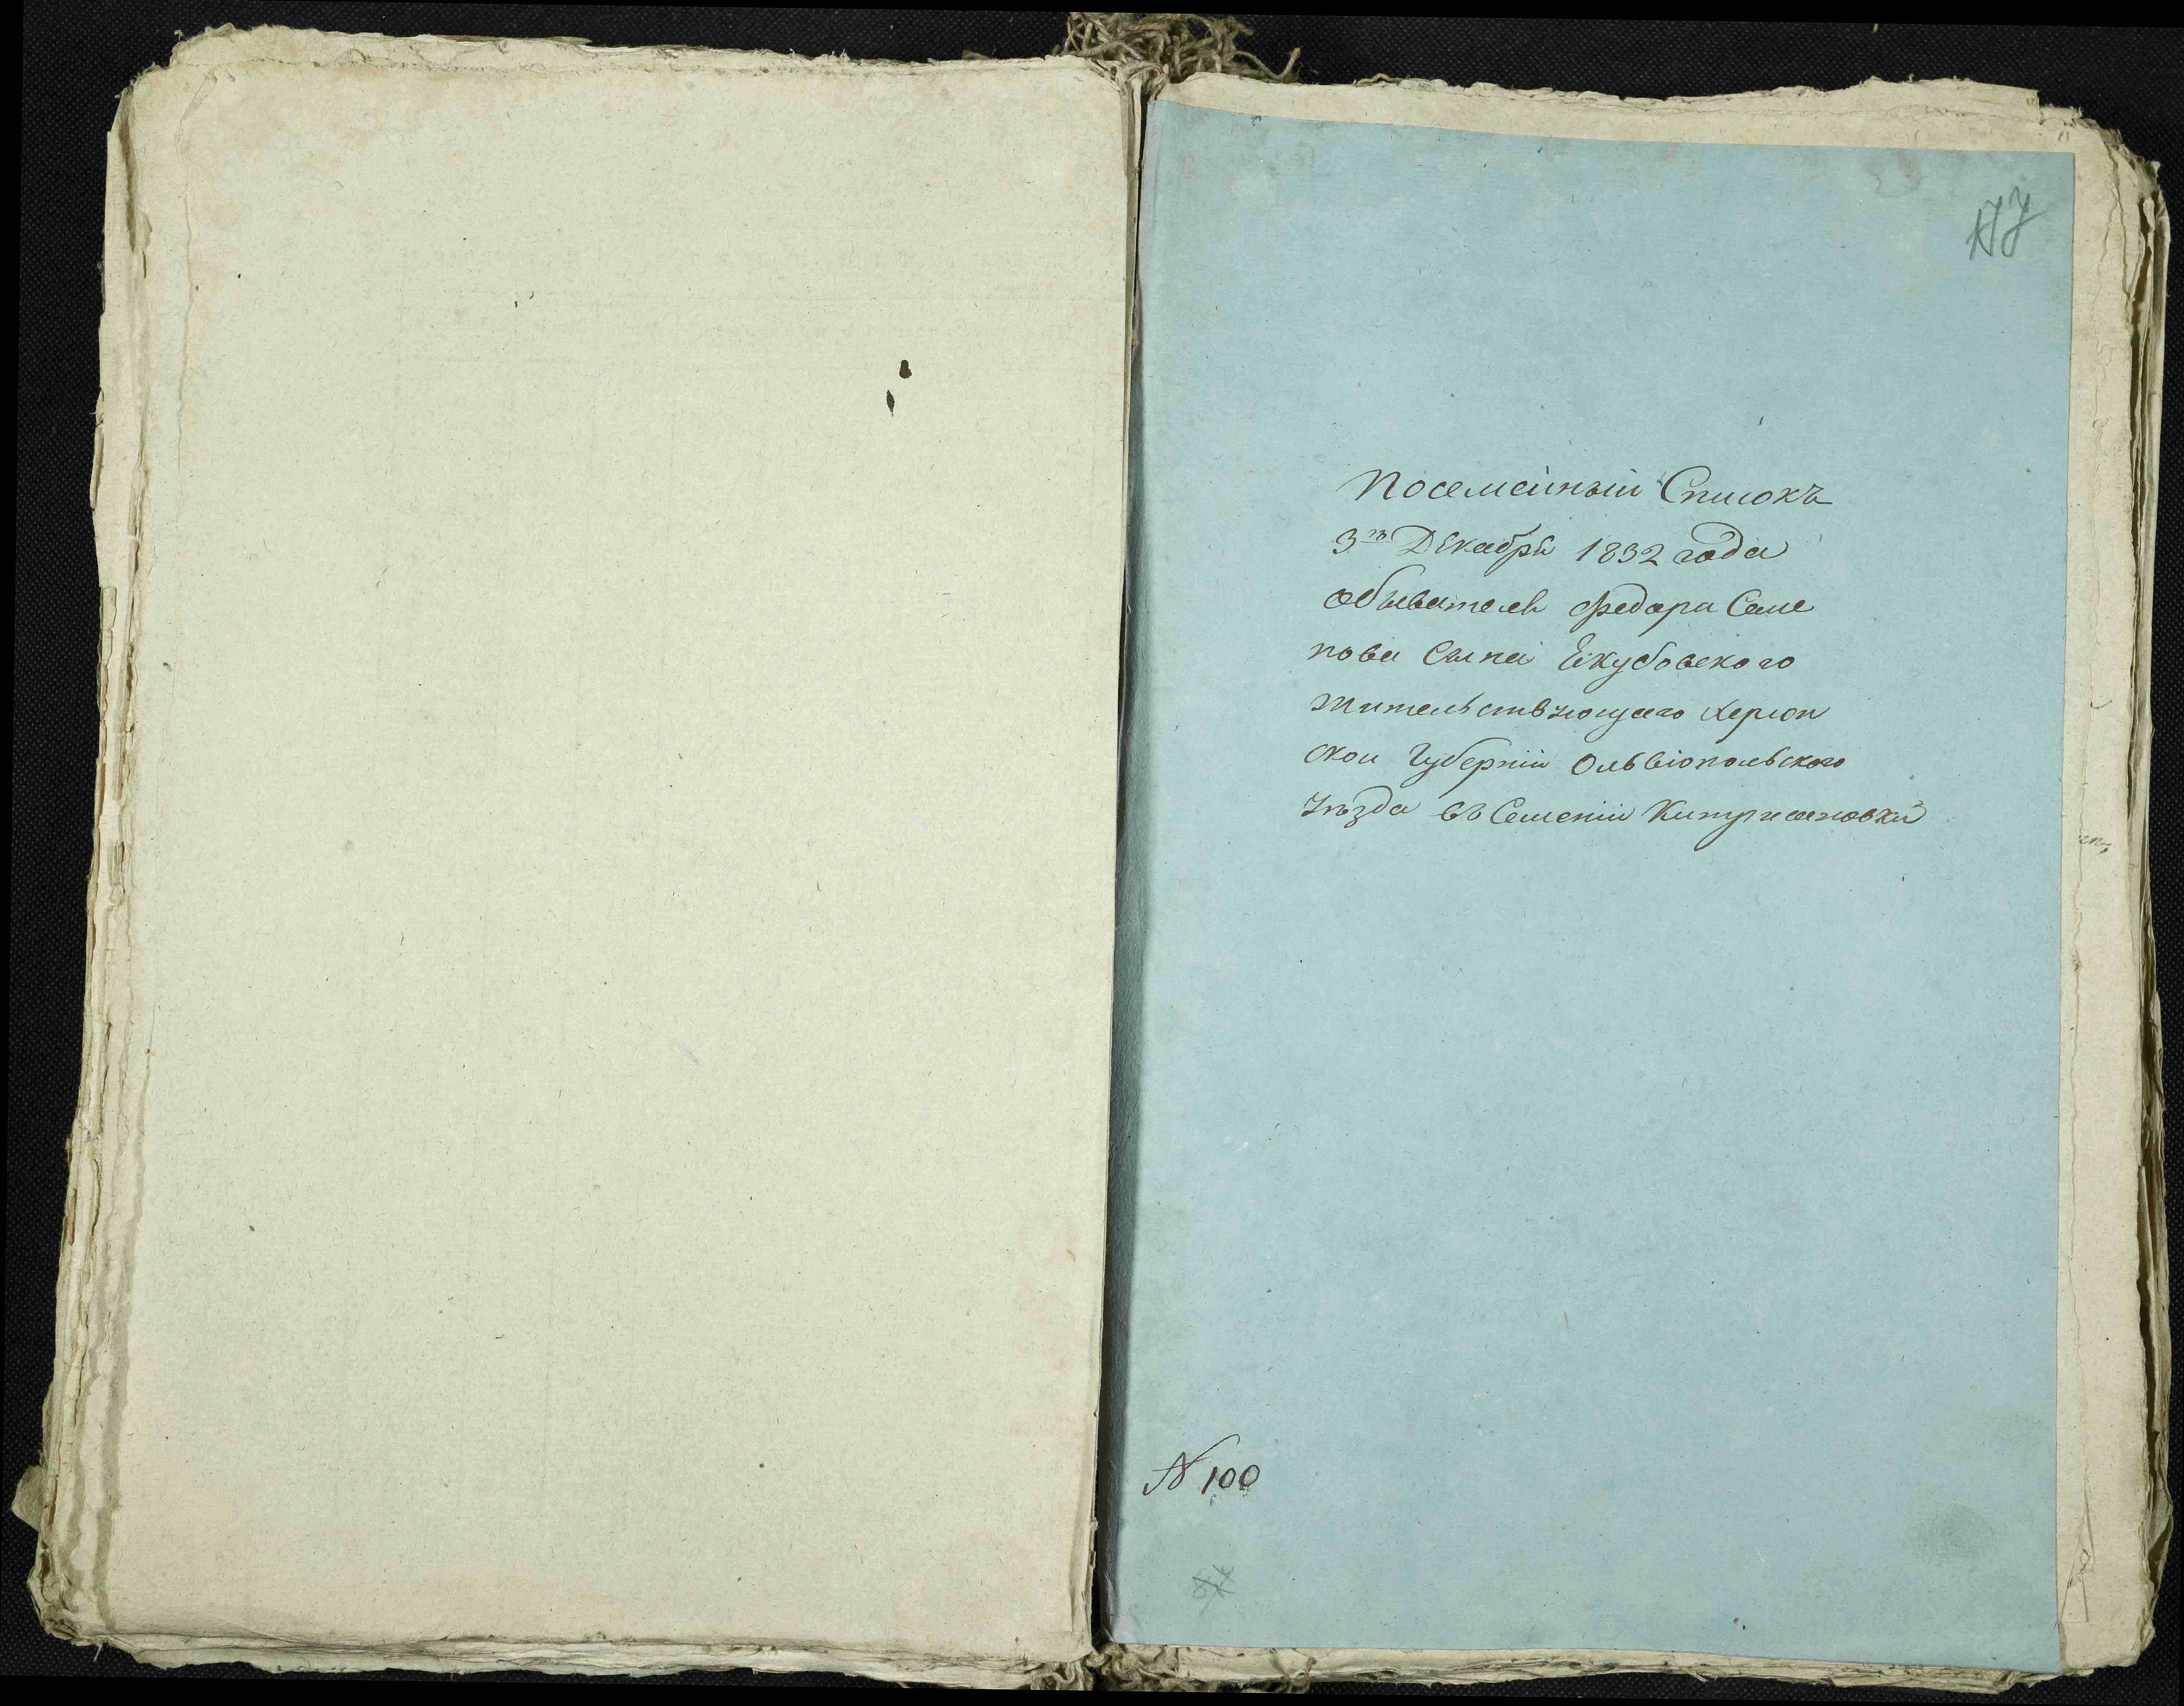 Посемейный Списокъ
3го Декабря 1832 года
обывателя Федора Семе
нова сына Екубовского
жительствующего Херсон
ской Губерніи Ольвіопольского
уѣзда въ Селеніи
N 100